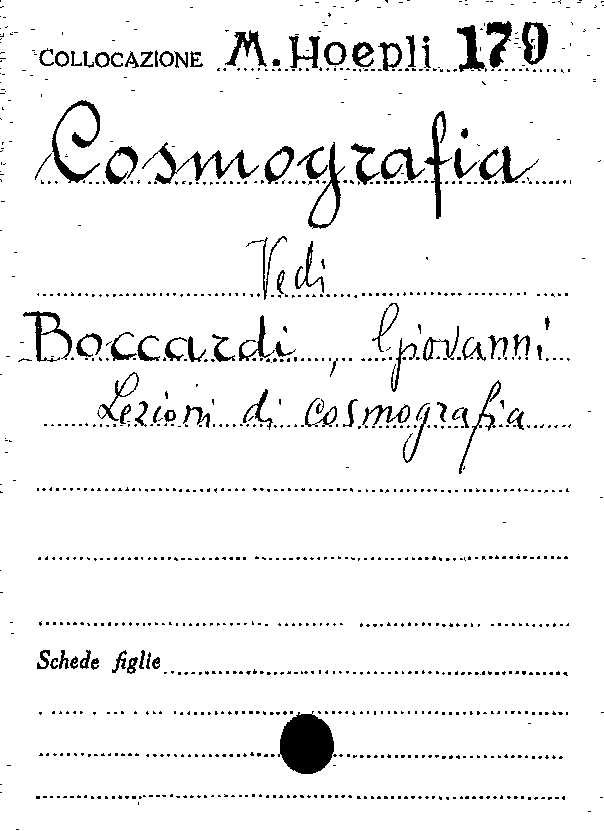 COLLOCAZIONE M. Hoepli 179
Cosmografia
Vedi
Boccardi, Giovanni
Lezioni di cosmografia
Schede figlie